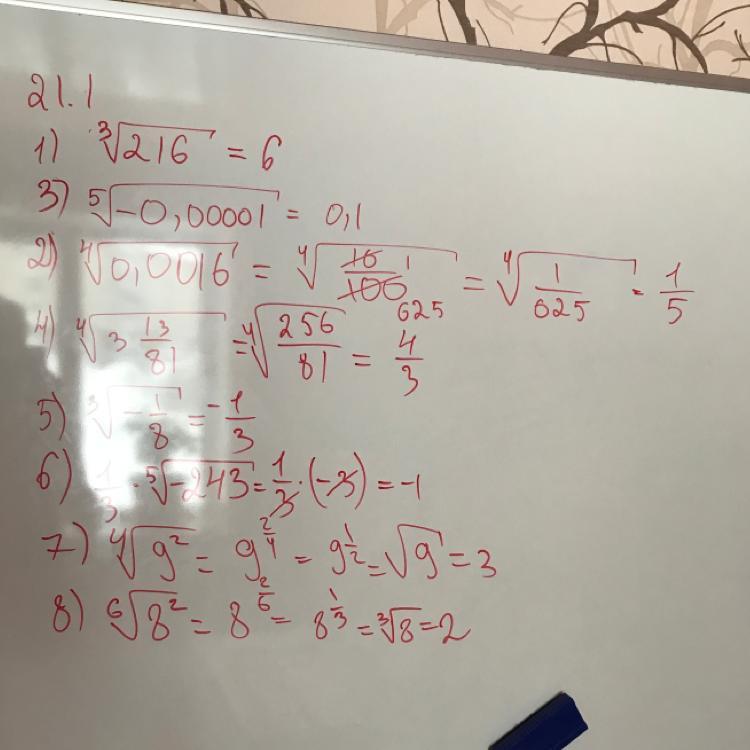 21.1
1) ∛216 = 6
3) ⁵√-0,00001 = 0,1
2) ⁴√0,0016 = ⁴√(16/100 1/625) = ⁴√(1/625) = 1/5
4) ⁴√(3 13/81) = ⁴√(256/81) = 4/3
5) ∛(-1/8) = -1/3
6) 1/3 · ⁵√-243 = 1/3 · (-3) = -1
7) ⁴√9² = 9^(2/4) = 9^(1/2) = √9 = 3
8) ⁶√8² = 8^(2/6) = 8^(1/3) = ∛8 = 2